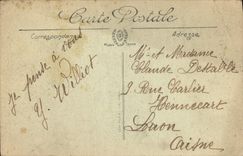 Carte Postale
Correspondance
Adresse
Je pense à vous
Y. Williot
Mr et Madame
Claude
9 Rue Carlier
Hennecart
Laon
Aisne